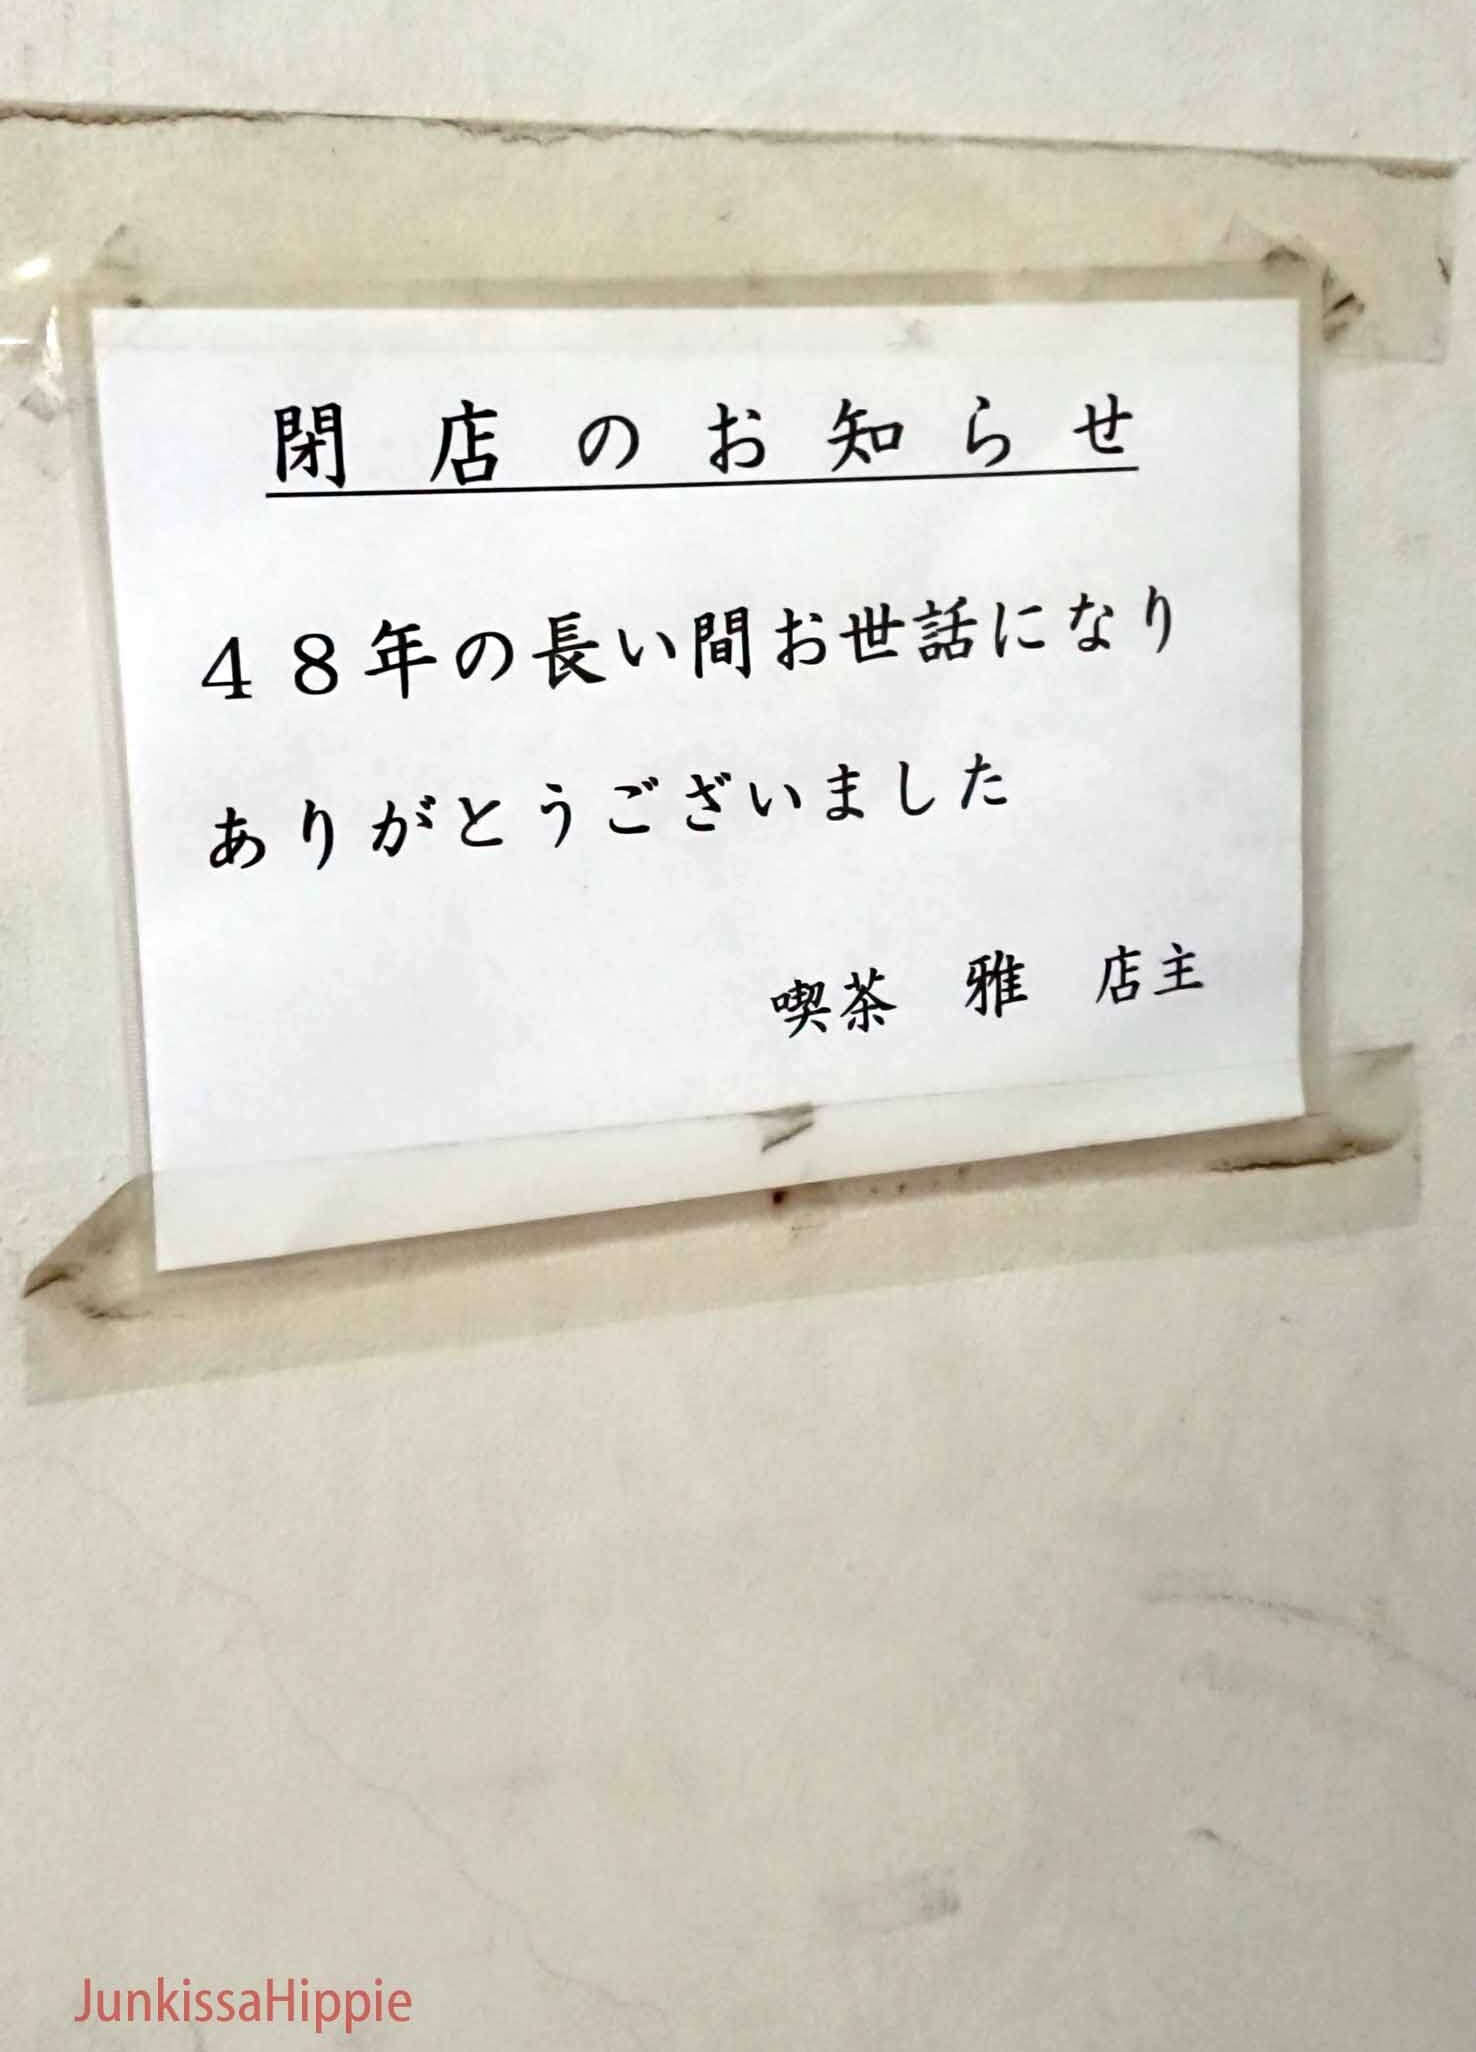 閉店のお知らせ
４８年の長い間お世話になり
ありがとうございました
喫茶　雅　店主
JunkissaHippie